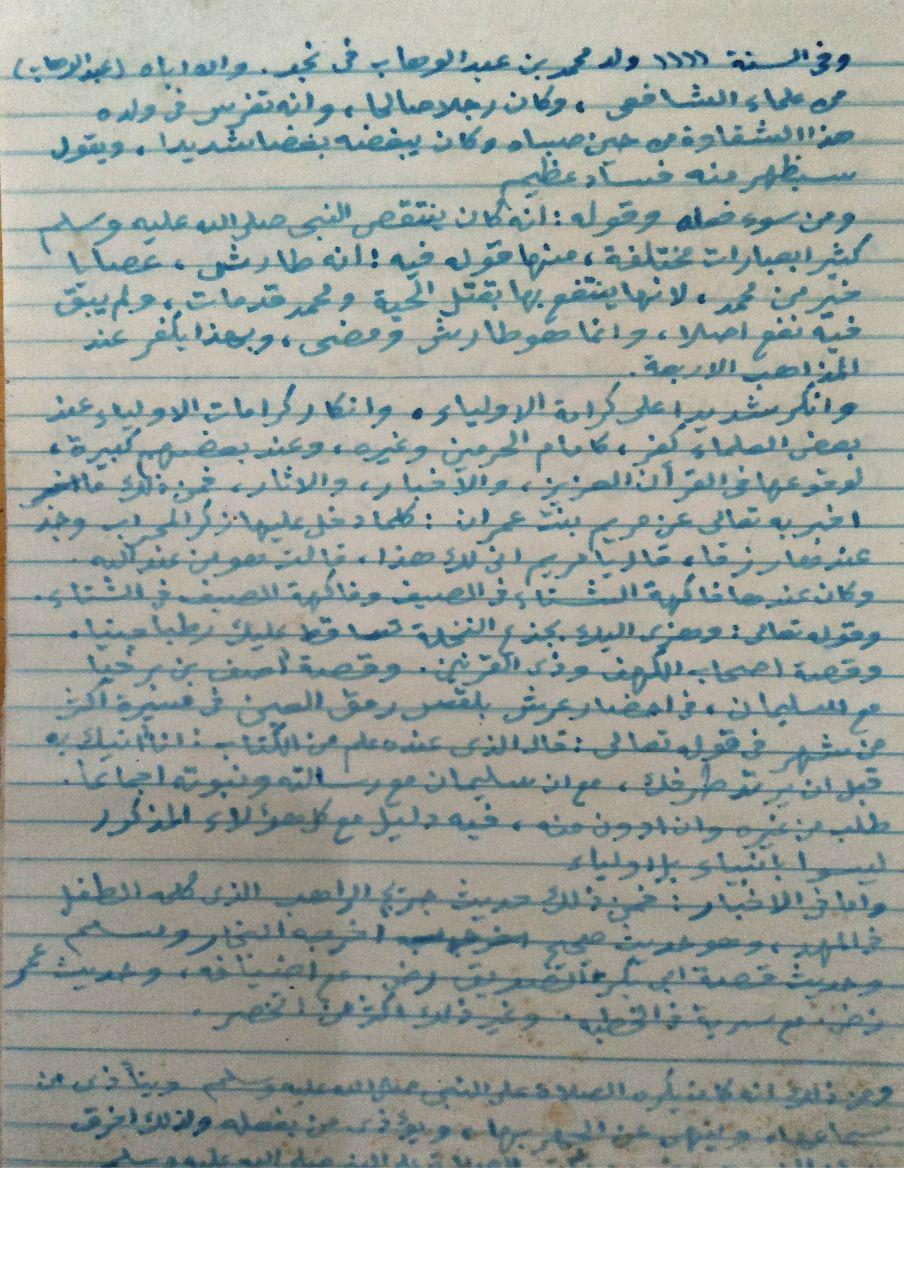 وفى السنة ١١١١ ولد محمد بن عبد الوهاب فى نجد. وانه اباه (عبد الوهاب)
من علماء الشافعى ، وكان رجلا صالحا ، وانه تفرس فى ولده
هذا الشقاوة من حين صباه وكان يبغضه بغضا شديدا . ويقول
سيظهر منه فساد عظيم
ومن سوء فعله وقوله : انه كان ينتقص النبى صلى الله عليه وسلم
كثيرا بعبارات مختلفة ، منها قوله فيه : انه طارش ، عصايا
خير من محمد ، لانها ينتفع بها بقتل الحية ومحمد قد مات ، ولم يبق
فيه نفع اصلا ، وانما هو طارش ومضى ، وبهذا يكفر عند
المذاهب الاربعة .
وانكر شديدا على كرامة الاولياء . وانكار كرامات الاولياء عند
بعض العلماء كفر ، كامام الحرمين وغيره ، وعند بعضهم كبيرة ،
لوقوعها فى القرآن العزيز ، والاخبار ، والاثار ، فمن ذلك ما
اخبر به تعالى عن مريم بنت عمران : كلما دخل عليها زكر المحراب وجد
عندها رزقا ، قال يا مريم انى لك هذا ، قالت هو من عند الله .
وكان عندها فاكهة الشتاء فى الصيف وفاكهة الصيف فى الشتاء .
وقوله تعالى : وهزى اليك بجذع النخلة تساقط عليك رطبا جنيا .
وقصة اصحاب الكهف وذى القرنين . وقصة آصف بن برخيا
مع سليمان ، فى احضار عرش بلقس رمق العين فى مسيرة اكثر
من شهر فى قوله تعالى : قال الذى عنده علم من الكتاب : انا أتيك به
قبل ان يرتد طرفك ، مع ان سليمان مع رسالته ونبوته اجماعا .
طلب من غيره وان ادون منه ، فيه دليل مع كل هؤلاء المذكور
ليسوا بانبياء بل اولياء
واما فى الاخبار : فمن ذلك حديث جريج الراهب الذى كلمه الطفل
فى المهد ، وهو حديث صحيح اخرجه البخار ومسلم
وحديث قصة ابى بكر الصديق رض . مع اضيافه ، وحديث عمر
رض . مع سرية فى الخطبه . وغير ذلك اكثر من الحصر .
ومن ذلك انه كان يكره الصلاة على النبى صلى الله عليه وسلم ويتأذى من
سماعها ، وينهى عن الجهر بها ، ويؤذى من يفعله ولذلك احرق